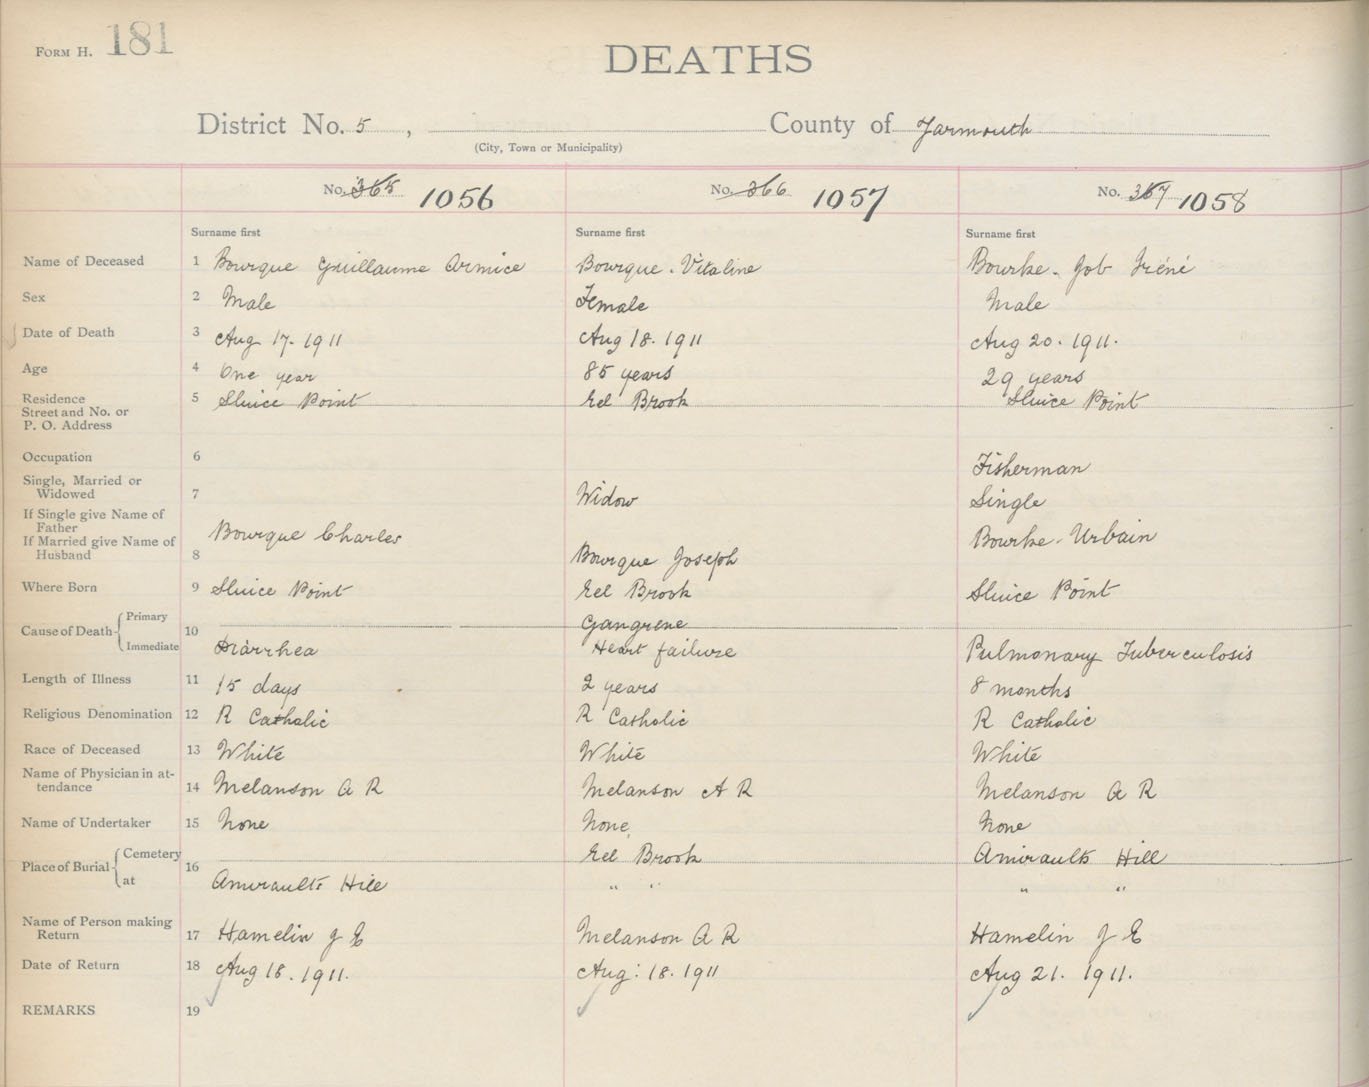 FORM H. 181
DEATHS
District No. 5 , County of Yarmouth
(City, Town or Municipality)
No. 365 1056 No. 366 1057 No. 367 1058
Surname first Surname first Surname first
Name of Deceased 1 Bourque Guillaume Armice Bourque. Vitaline Bourke. Job Iréné
Sex 2 Male Female Male
Date of Death 3 Aug 17. 1911 Aug 18. 1911 Aug 20. 1911.
Age 4 One year 85 years 29 years
Residence 5 Sluice Point Eel Brook Sluice Point
Street and No. or
P. O. Address
Occupation 6 Fisherman
Single, Married or
Widowed 7 Widow Single
If Single give Name of
Father Bourque Charles Bourke. Urbain
If Married give Name of
Husband 8 Bourque Joseph
Where Born 9 Sluice Point Eel Brook Sluice Point
Primary Gangrene
Cause of Death 10
Immediate Diarrhea Heart failure Pulmonary Tuberculosis
Length of Illness 11 15 days 2 years 8 months
Religious Denomination 12 R Catholic R Catholic R Catholic
Race of Deceased 13 White White White
Name of Physician in at-
tendance 14 Melanson A R Melanson A R Melanson A R
Name of Undertaker 15 None None None
Cemetery Eel Brook Amiraults Hill
Place of Burial 16
at Amiraults Hill " " " "
Name of Person making
Return 17 Hamelin J E Melanson A R Hamelin J E
Date of Return 18 Aug 18. 1911. Aug: 18. 1911 Aug 21. 1911.
REMARKS 19